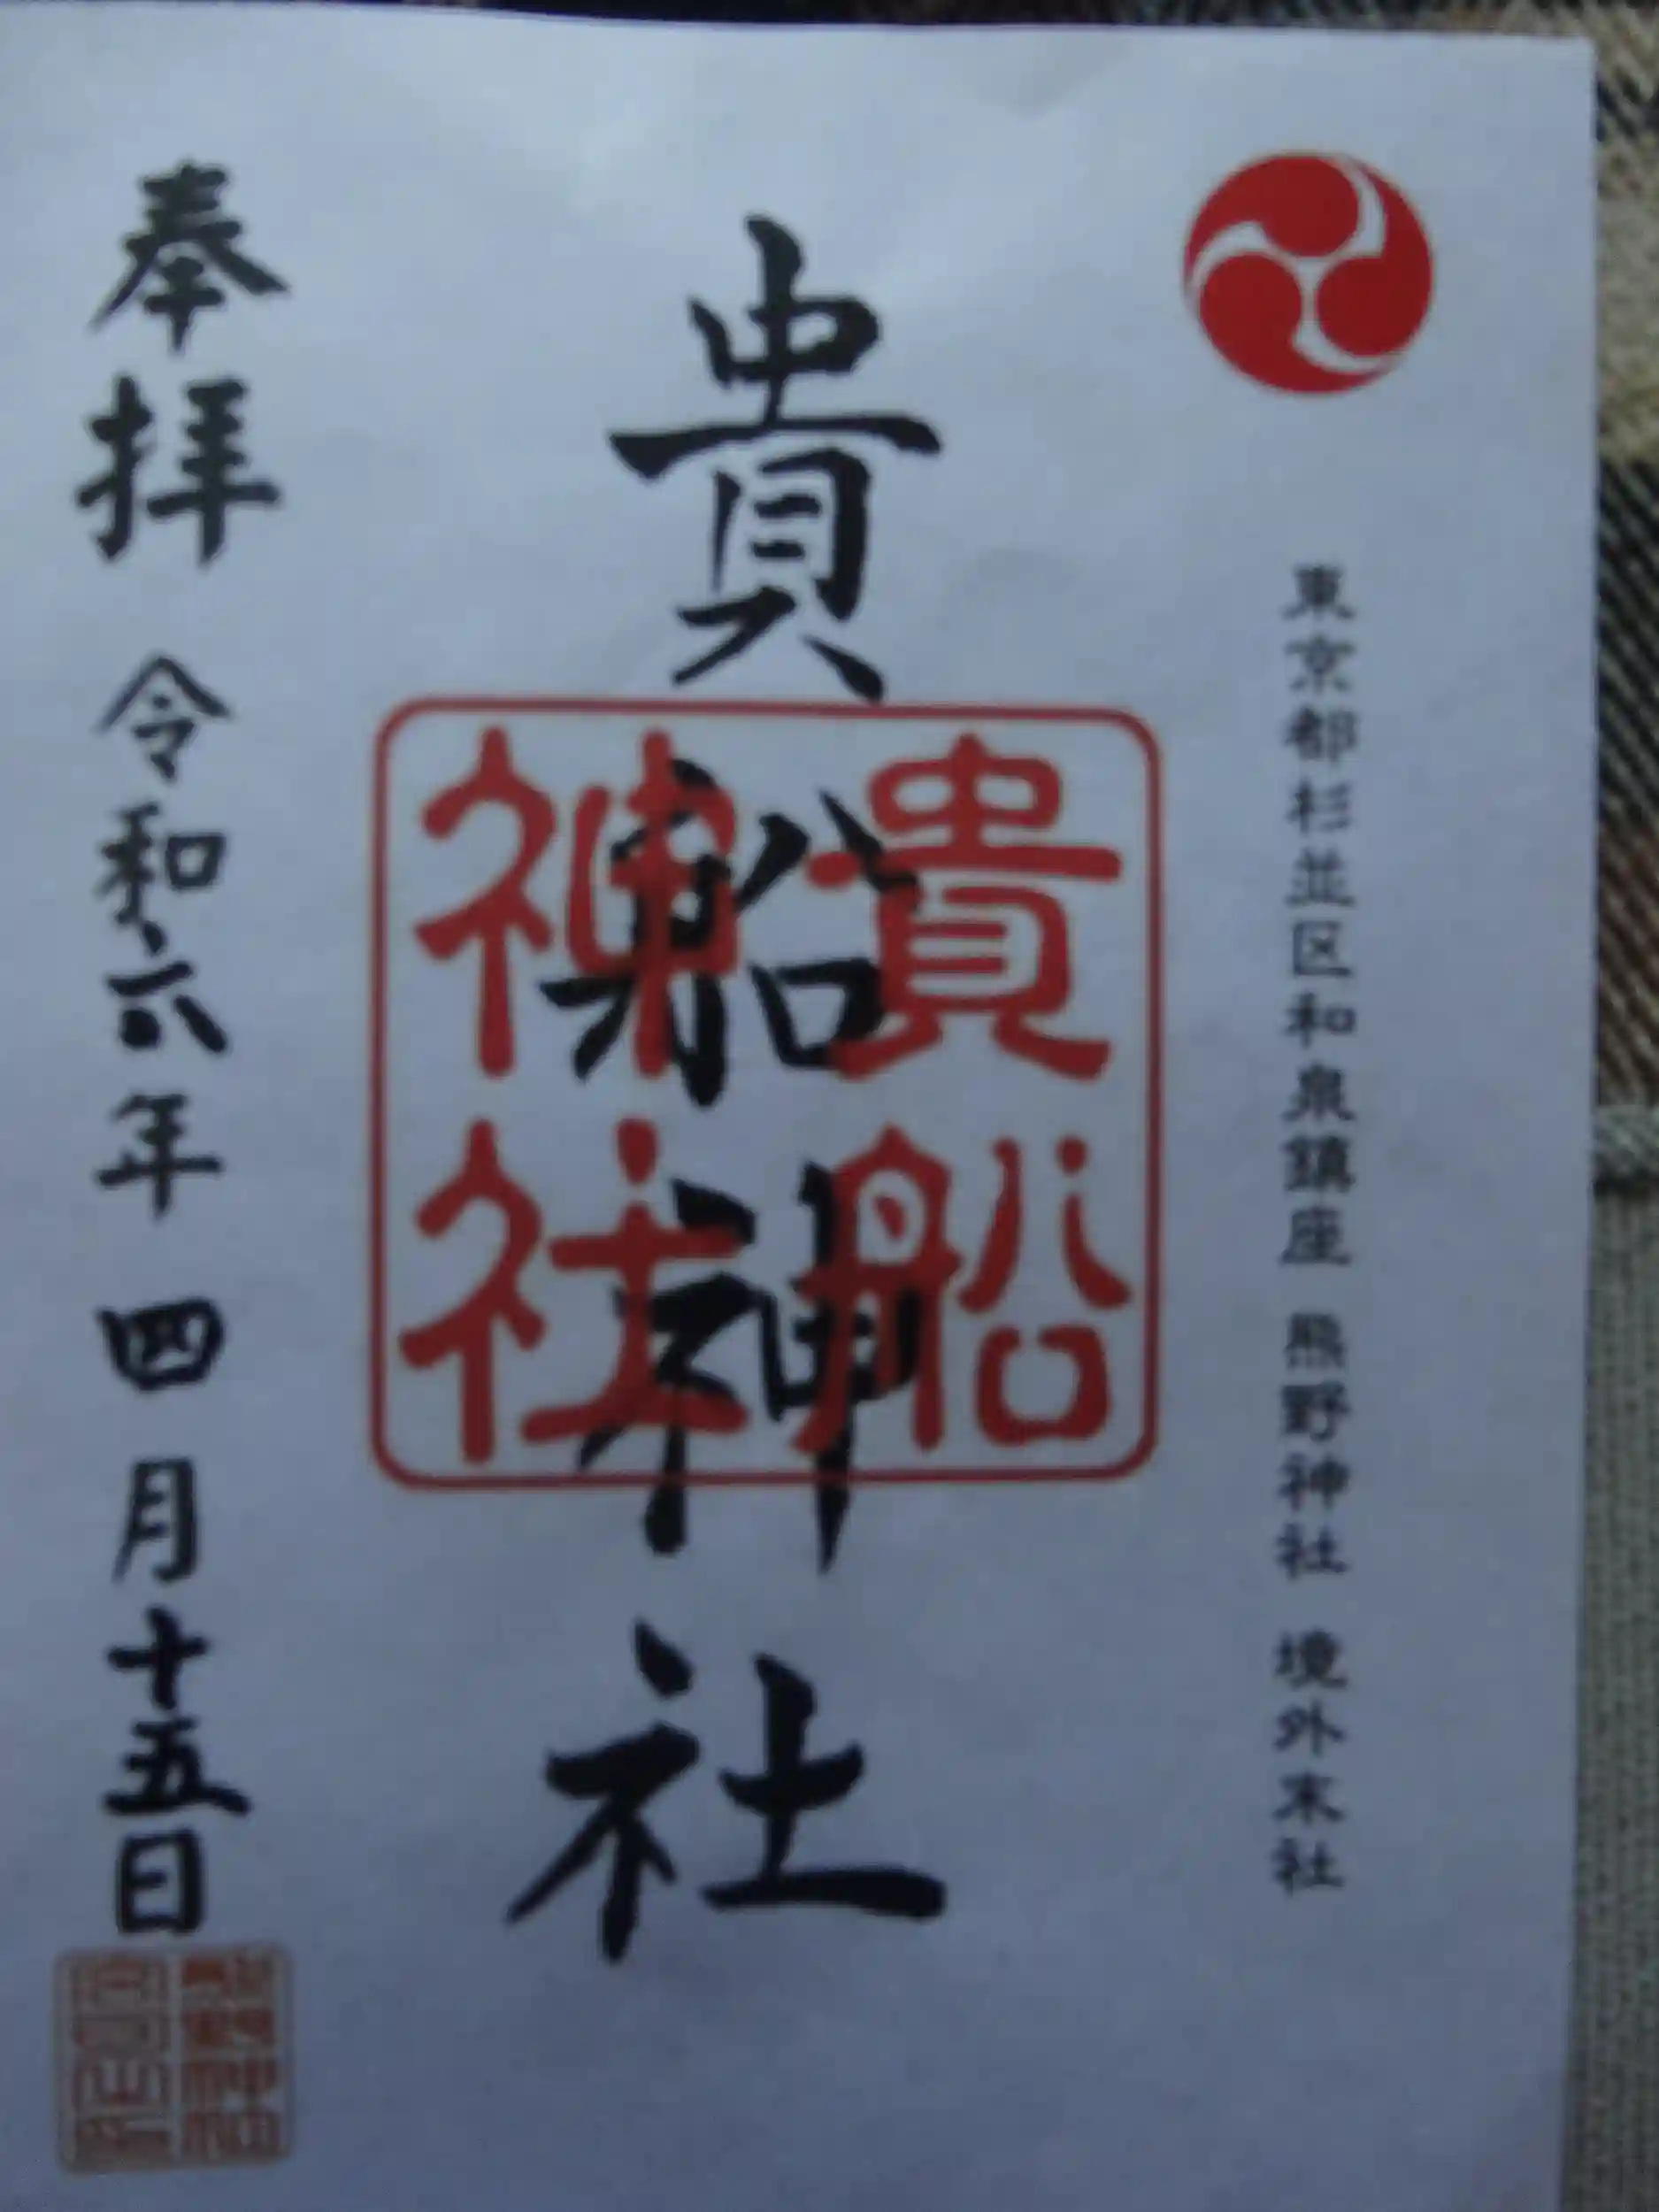 東京都杉並区和泉鎮座 熊野神社 境外末社
貴船神社
貴船
神社
奉拝 令和六年 四月十五日